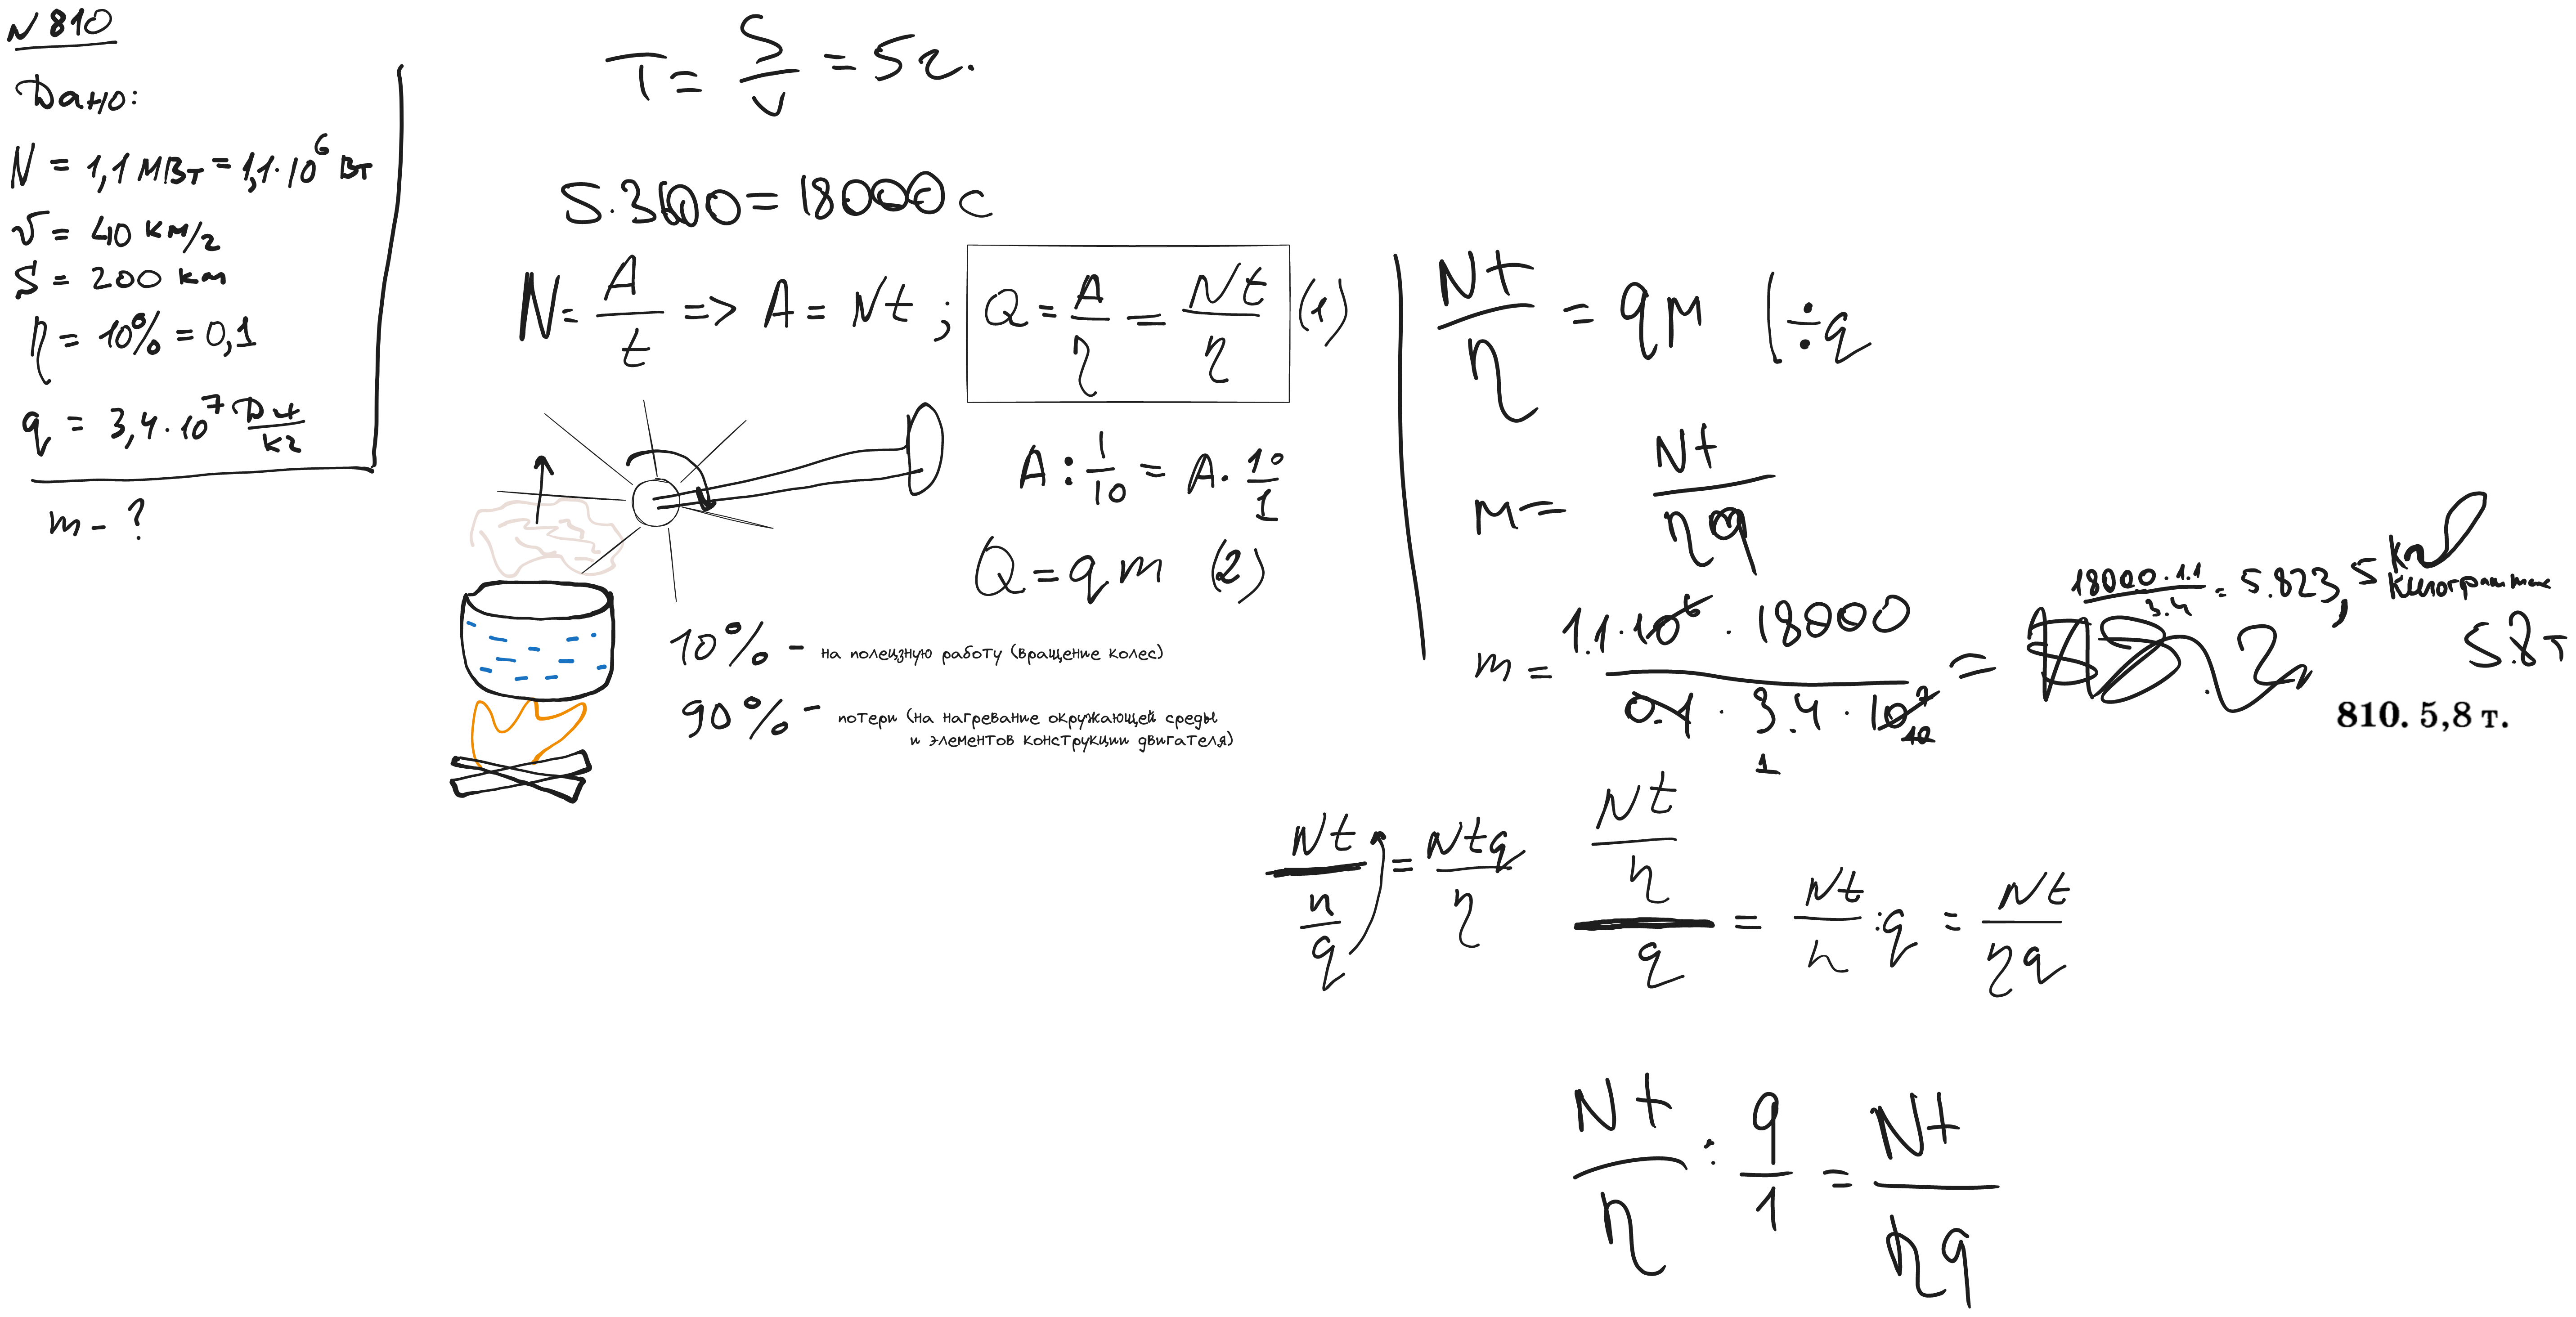 N 810
Дано:
N = 1,1 МВт = 1,1·10⁶ Вт
v = 40 км/г
S = 200 км
η = 10% = 0,1
q = 3,4·10⁷ Дж/кг
m - ?
T = S/v = 5 г.
5·3600 = 18000 с
N = A/t => A = Nt ; Q = A/η = Nt/η (1)
A : 1/10 = A · 10/1
Q = qm (2)
10% - на полецзную работу (вращение колес)
90% - потери (на нагревание окружающей среды
и элементов конструкции двигателя)
Nt/η = qм | ÷q
м = Nt/ηq
18000·1.1/3.4 = 5.823,5 кг
килограммы
m = 1.1·10⁶ · 18000 / 0.1 · 3.4 · 10⁷ =
10
1
5.8 т
810. 5,8 т.
Nt/(n/q) = Ntq/η
(Nt/η)/q = Nt/η : q = Nt/ηq
Nt/η : q/1 = Nt/ηq